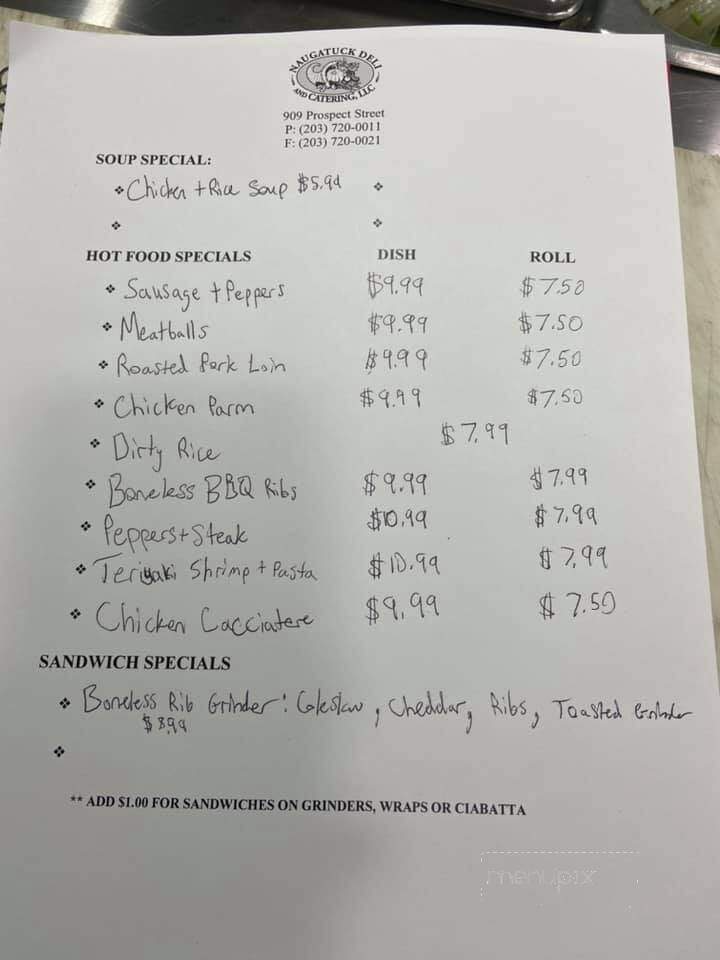 NAUGATUCK DELI
AND CATERING, LLC
909 Prospect Street
P: (203) 720-0011
F: (203) 720-0021
SOUP SPECIAL:
❖ Chicken + Rice Soup $5.99 ❖
❖ ❖
HOT FOOD SPECIALS DISH ROLL
❖ Sausage + Peppers $9.99 $7.50
❖ Meatballs $9.99 $7.50
❖ Roasted Pork Loin $9.99 $7.50
❖ Chicken Parm $9.99 $7.50
❖ Dirty Rice $7.99
❖ Boneless BBQ Ribs $9.99 $7.99
❖ Peppers + Steak $10.99 $7.99
❖ Teriyaki Shrimp + Pasta $10.99 $7.99
❖ Chicken Cacciatere $9.99 $7.50
SANDWICH SPECIALS
❖ Boneless Rib Grinder: Coleslaw, Cheddar, Ribs, Toasted Grinder
$8.99
❖
** ADD $1.00 FOR SANDWICHES ON GRINDERS, WRAPS OR CIABATTA
menupix